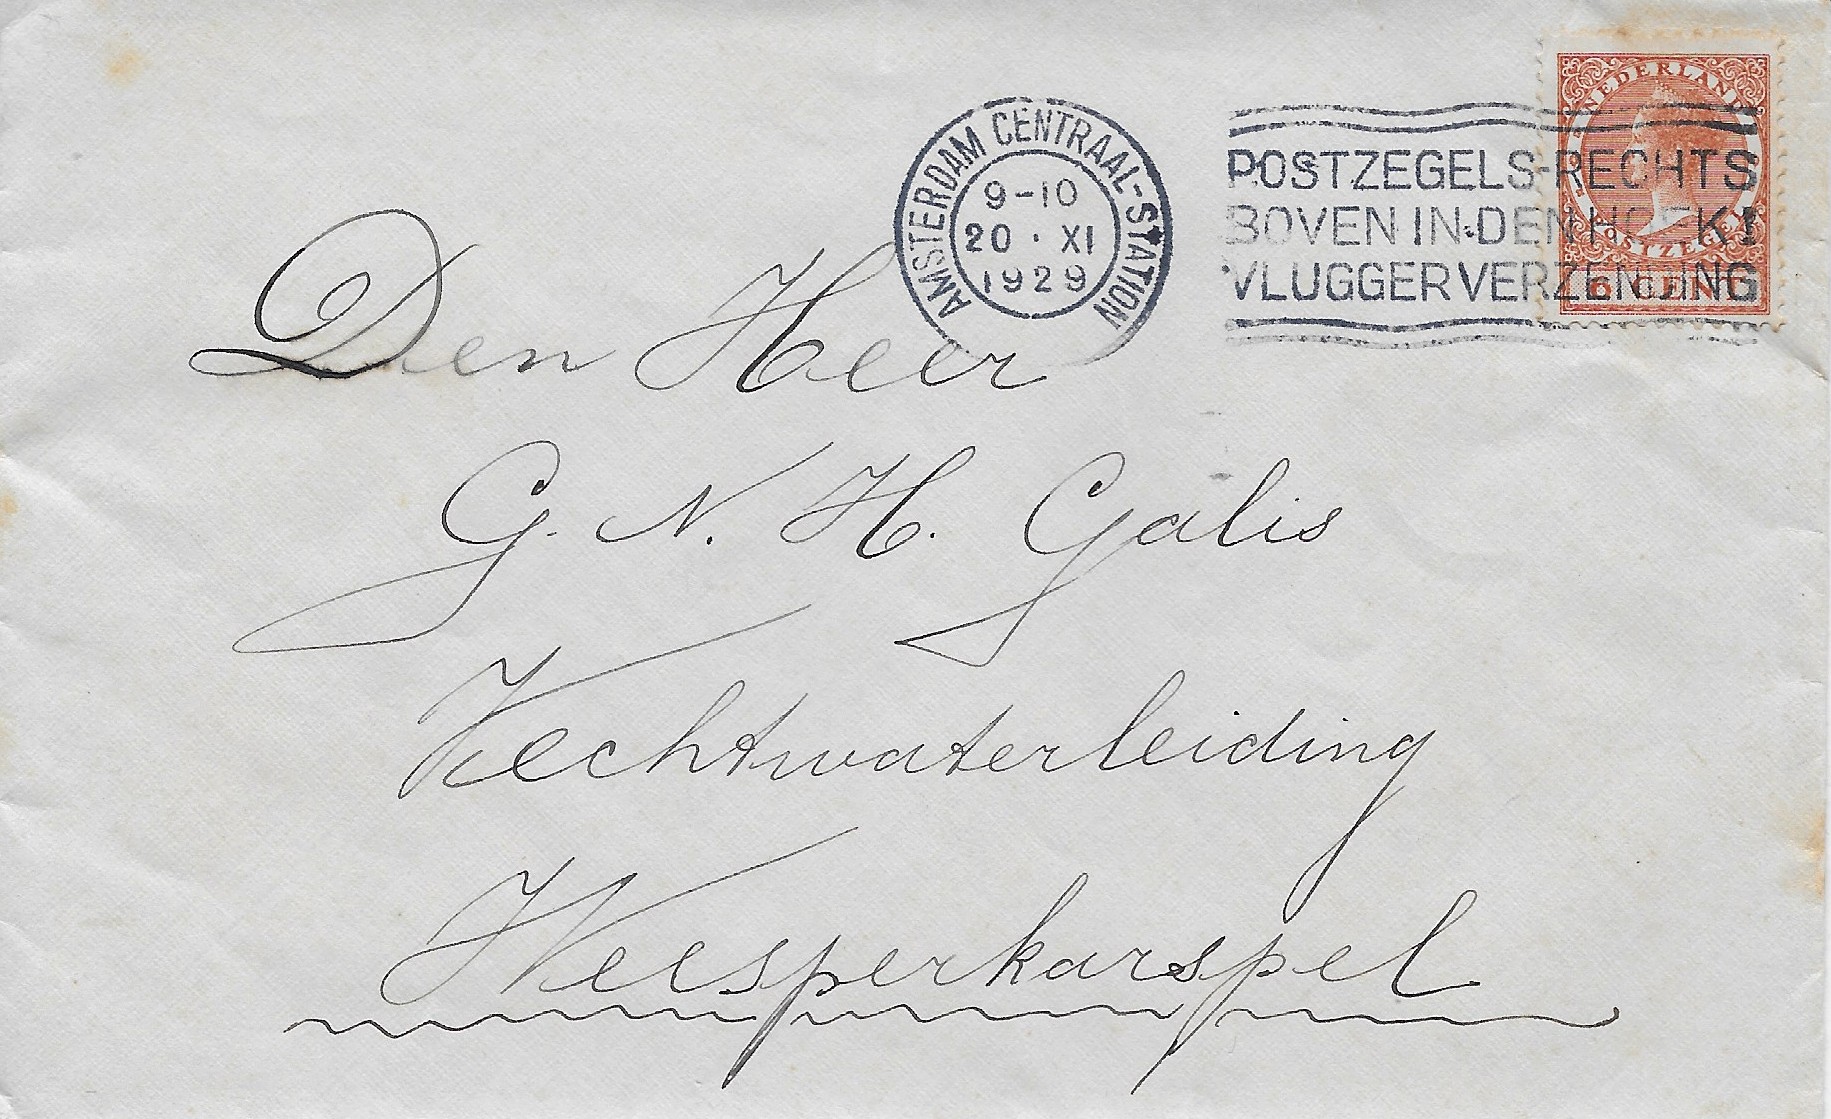 AMSTERDAM CENTRAAL-STATION
9-10
20 · XI
1929
POSTZEGELS-RECHTS
BOVEN IN-DEN HOEK!
VLUGGER VERZENDING
NEDERLAND
POSTZEGEL
6 CENT
Den Heer
G. N. H. Galis
Vechtwaterleiding
Weesperkarspel